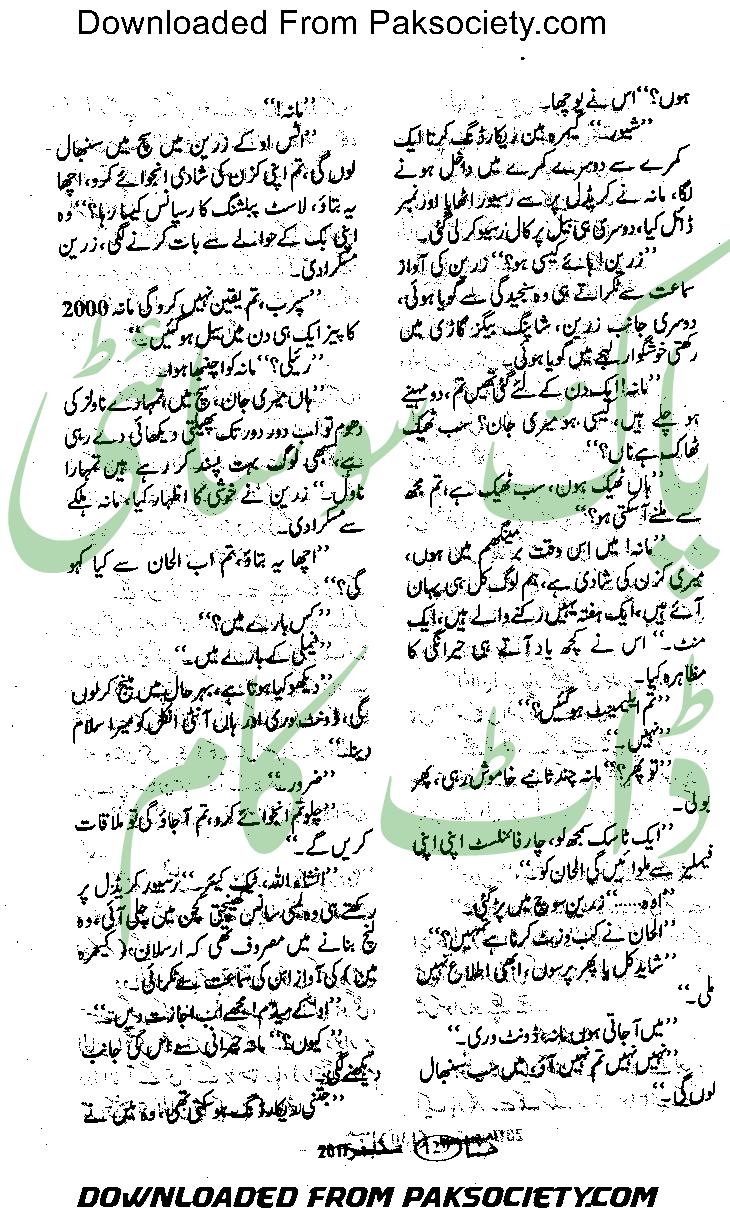 Downloaded From Paksociety.com
ہوں؟“ اس نے پوچھا۔
”شیور۔“ کیمرہ مین ریکارڈنگ کرتا ایک
کمرے سے دوسرے کمرے میں داخل ہونے
لگا، مانہ نے کریڈل پر سے رسیور اٹھایا اور نمبر
ڈائل کیا، دوسری ہی بیل پر کال رسیو کر لی گئی۔
”زرین! ہائے کیسی ہو؟“ زرین کی آواز
سماعت سے ٹکراتے ہی وہ سنجیدگی سے گویا ہوئی،
دوسری جانب زرین، شاپنگ بیگز گاڑی میں
رکھتی خوشگوار لہجے میں گویا ہوئی۔
”مانہ! ایک دن کے لئے گئی تھیں تم، دو مہینے
ہو چلے ہیں، کیسی ہو میری جان؟ سب ٹھیک
ٹھاک ہے ناں؟“
”ہاں ٹھیک ہوں، سب ٹھیک ہے، تم مجھ
سے ملنے آ سکتی ہو؟“
”مانہ! میں اس وقت برمنگھم میں ہوں،
میری کزن کی شادی ہے، ہم لوگ کل ہی یہاں
آئے ہیں، ایک ہفتہ یہیں رکنے والے ہیں، ایک
منٹ۔“ اس نے کچھ یاد آتے ہی حیرانگی کا
مظاہرہ کیا۔
”تم ایلیمینٹ ہو گئیں؟“
”نہیں۔“
”تو پھر؟“ مانہ چند ثانیے خاموش رہی، پھر
بولی۔
”ایک ٹاسک سمجھ لو، چار فائنلسٹ اپنی اپنی
فیملیز سے ملوائیں گی الحان کو۔“
”اوہ.....“ زرین سوچ میں پڑ گئی۔
”الحان نے کب وزٹ کرنا ہے تمہیں؟“
”شاید کل یا پھر پرسوں، ابھی اطلاع نہیں
ملی۔“
”میں آ جاتی ہوں مانہ، ڈونٹ وری۔“
”نہیں نہیں تم نہیں آؤ، میں سب سنبھال
لوں گی۔“
”مانہ!“
”اٹس او کے زرین میں سچ میں سنبھال
لوں گی، تم اپنی کزن کی شادی انجوائے کرو، اچھا
یہ بتاؤ، لاسٹ پبلشنگ کا رسپانس کیسا رہا؟“ وہ
اپنی بک کے حوالے سے بات کرنے لگی، زرین
مسکرا دی۔
”سپرب، تم یقین نہیں کرو گی مانہ 2000
کاپیز ایک ہی دن میں سیل ہو گئیں۔“
”رئیلی؟“ مانہ کو اچنبھا ہوا۔
”ہاں میری جان، سچ میں، تمہارے ناولز کی
دھوم تو اب دور دور تک پھیلتی دیکھائی دے رہی
ہے، سبھی لوگ بہت پسند کر رہے ہیں تمہارا
ناول۔“ زرین نے خوشی کا اظہار کیا، مانہ ہلکے
سے مسکرا دی۔
”اچھا یہ بتاؤ، تم اب الحان سے کیا کہو
گی؟“
”کس بارے میں؟“
”فیملی کے بارے میں۔“
”دیکھو کیا ہوتا ہے، بہرحال میں مینج کر لوں
گی، ڈونٹ وری اور ہاں آنٹی انکل کو میرا سلام
دینا۔“
”ضرور۔“
”چلو تم انجوائے کرو، تم آ جاؤ گی تو ملاقات
کریں گے۔“
”انشاء اللہ، ٹیک کیئر۔“ رسیور کریڈل پر
رکھتے ہی وہ لمبی سانس کھینچتی کچن میں چلی آئی، وہ
لنچ بنانے میں مصروف تھی کہ ارسلان (کیمرہ
مین) کی آواز اس کی سماعت سے ٹکرائی۔
”او کے میڈم! مجھے اب اجازت دیں۔“
”کیوں؟“ مانہ حیرانی سے اس کی جانب
دیکھنے لگی۔
”جتنی ریکارڈنگ ہو سکتی تھی، وہ میں نے
حنا 2017
پاک سوسائٹی
ڈاٹ کام
DOWNLOADED FROM PAKSOCIETY.COM